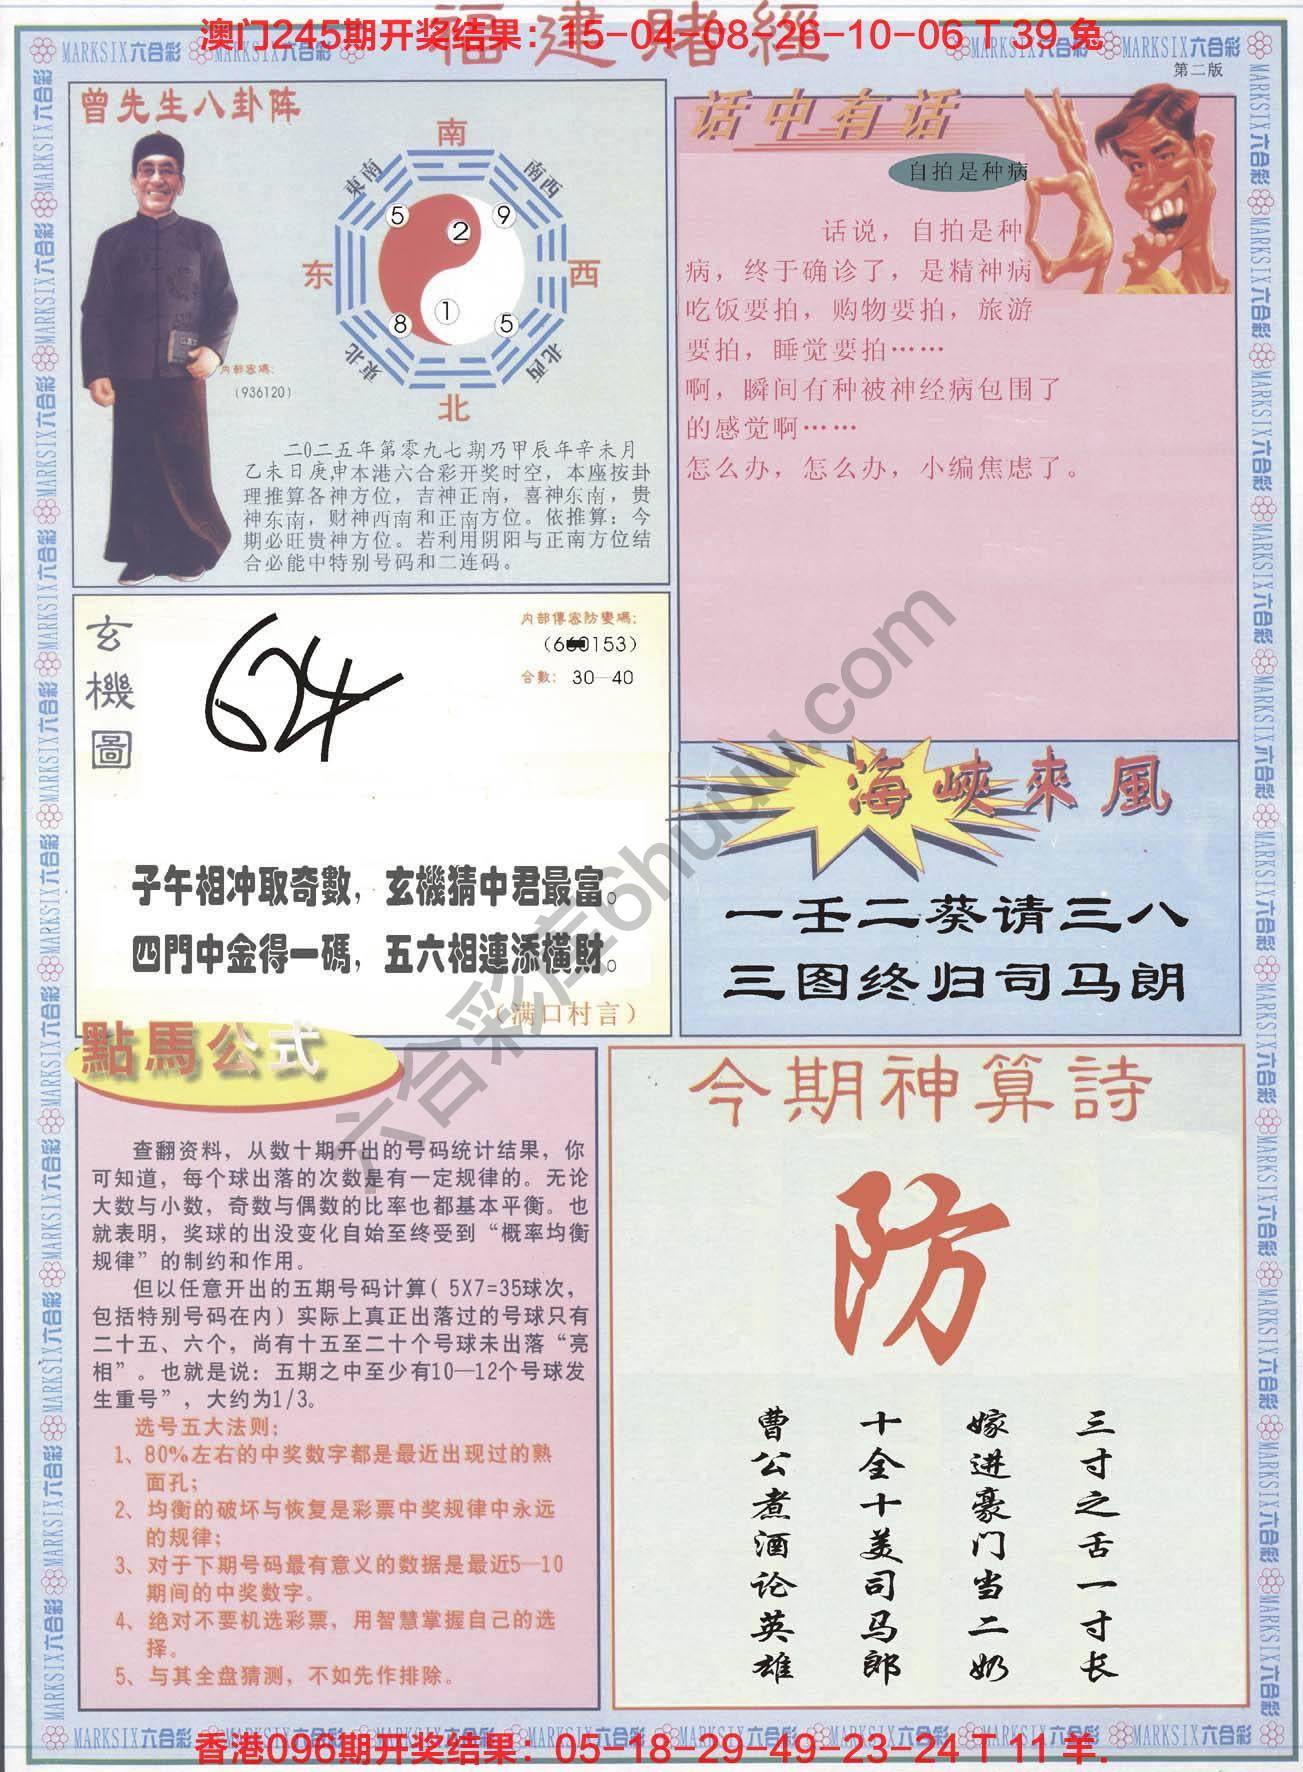 福建賭經
澳门245期开奖结果：15-04-08-26-10-06 T 39 兔
MARKSIX六合彩 MARKSIX六合彩
MARKSIX六合彩 MARKSIX六合彩
第二版
曾先生八卦阵
南
東南
南西
5
9
2
东
西
8
1
5
東北
北西
北
内部密碼：
（936120）
二0二五年第零九七期乃甲辰年辛未月
乙未日庚申本港六合彩开奖时空，本座按卦
理推算各神方位，吉神正南，喜神东南，贵
神东南，财神西南和正南方位。依推算：今
期必旺贵神方位。若利用阴阳与正南方位结
合必能中特别号码和二连码。
话中有话
自拍是种病
话说，自拍是种
病，终于确诊了，是精神病
吃饭要拍，购物要拍，旅游
要拍，睡觉要拍……
啊，瞬间有种被神经病包围了
的感觉啊……
怎么办，怎么办，小编焦虑了。
玄機圖
内部傳密防變碼：
0153）
合數：30—40
624
子午相冲取奇數，玄機猜中君最富。
四門中金得一碼，五六相連添橫財。
（满口村言）
海峽來風
一壬二葵请三八
三图终归司马朗
點馬公式
查翻资料，从数十期开出的号码统计结果，你
可知道，每个球出落的次数是有一定规律的。无论
大数与小数，奇数与偶数的比率也都基本平衡。也
就表明，奖球的出没变化自始至终受到“概率均衡
规律”的制约和作用。
但以任意开出的五期号码计算（5X7=35球次，
包括特别号码在内）实际上真正出落过的号球只有
二十五、六个，尚有十五至二十个号球未出落“亮
相”。也就是说：五期之中至少有10—12个号球发
生重号”，大约为1/3。
选号五大法则：
1、80%左右的中奖数字都是最近出现过的熟
面孔；
2、均衡的破坏与恢复是彩票中奖规律中永远
的规律；
3、对于下期号码最有意义的数据是最近5—10
期间的中奖数字。
4、绝对不要机选彩票，用智慧掌握自己的选
择。
5、与其全盘猜测，不如先作排除。
今期神算詩
防
三寸之舌一寸长
嫁进豪门当二奶
十全十美司马郎
曹公煮酒论英雄
六合彩库6huuu.com
MARKSIX六合彩 MARKSIX六合彩 MARKSIX六合彩 MARKSIX六合彩 MARKSIX六合彩 MARKSIX六合彩 MARKSIX六合彩 MARKSIX六合彩
香港096期开奖结果：05-18-29-49-23-24 T 11 羊.